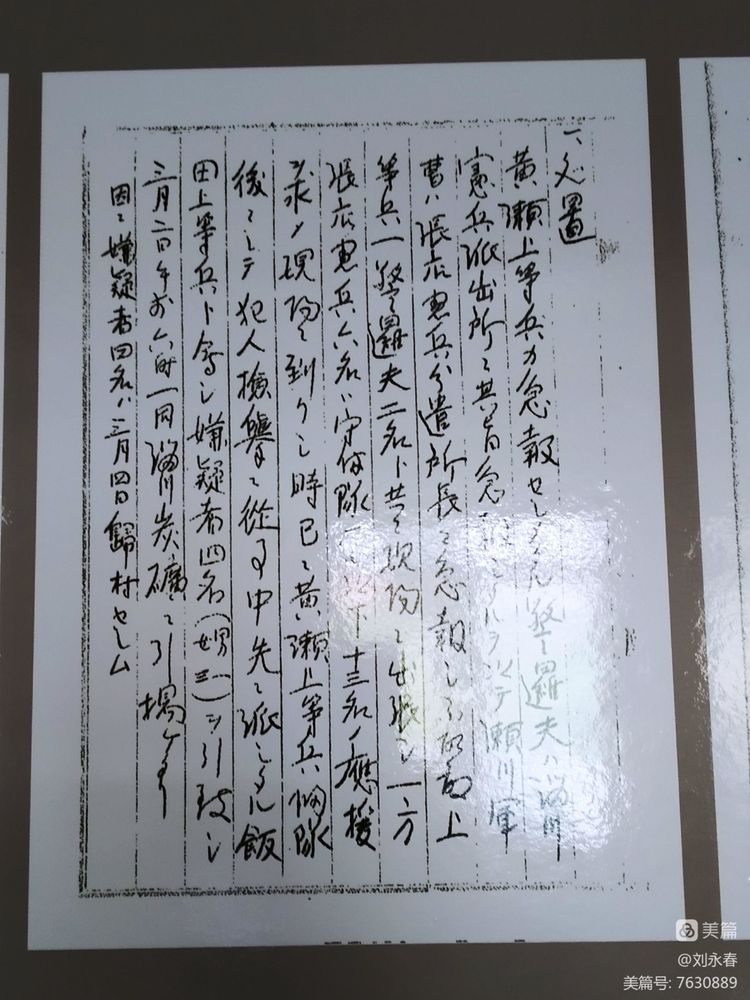 一、処置
黄瀬上等兵カ急報セシメタル警邏夫ハ淄川
憲兵派出所ニ其旨急報シタルヲ以テ瀬川軍
曹ハ張店憲兵分遣所長ニ急報シ上
等兵一警邏夫二名ト共ニ現場ニ出張シ一方
張店憲兵六名ハ守備隊以下十三名ノ應援
ヲ求メ現場ニ到リシ時已ニ黄瀬上等兵個隊
後ニシテ犯人検擧ニ從事中先ニ派シタル飯
田上等兵ト會シ嫌疑者四名(甥三一)ヲ引致シ
三月二日午前六時一同淄川炭礦ニ引揚ケタリ
因ニ嫌疑者四名ハ三月四日歸村セシム
美篇
@刘永春
美篇号: 7630889